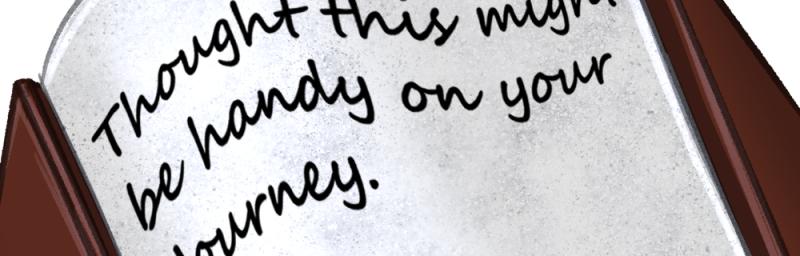 Thought this might
be handy on your
journey.